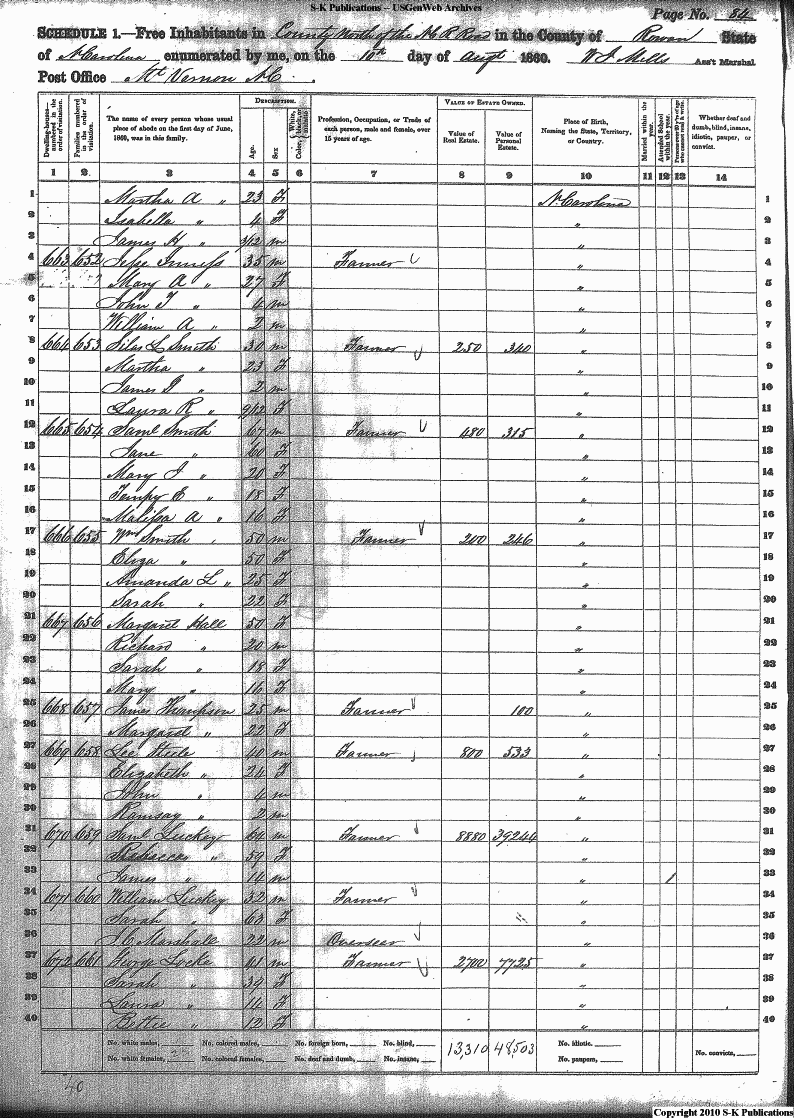 S-K Publications -- USGenWeb Archives
Page No. 84
SCHEDULE 1.—Free Inhabitants in County North of the N C R Road in the County of Rowan State
of N Carolina enumerated by me, on the 10th day of augt 1860. W J Mills Ass't Marshal
Post Office Mt Vernon N C.
Dwelling-houses—numbered in the order of visitation.
Families numbered in the order of visitation.
The name of every person whose usual place of abode on the first day of June, 1860, was in this family.
DESCRIPTION.
Age.
Sex
Color, White, black, or mulatto
Profession, Occupation, or Trade of each person, male and female, over 15 years of age.
VALUE OF ESTATE OWNED.
Value of Real Estate.
Value of Personal Estate.
Place of Birth, Naming the State, Territory, or Country.
Married within the year.
Attended School within the year.
Persons over 20 y'rs of age who cannot read & write.
Whether deaf and dumb, blind, insane, idiotic, pauper, or convict.
1 2 3 4 5 6 7 8 9 10 11 12 13 14
1 Martha A " 23 F N. Carolina 1
2 Isabella " 4 F " 2
3 James H " 3/12 m " 3
4 663 652 Jesse 35 m Farmer " 4
5 Mary A " 27 F " 5
6 John T " 4 m " 6
7 William A " 2 m " 7
8 664 653 Silas L Smith 30 m Farmer 250 340 " 8
9 Martha " 23 F " 9
10 James " 2 m " 10
11 Laura R " 9/12 F " 11
12 665 654 Saml Smith 67 m Farmer 480 315 " 12
13 Jane " 60 F " 13
14 Mary J " 20 F " 14
15 Tempy E " 18 F " 15
16 Malissa A " 16 F " 16
17 666 655 Wm Smith 50 m Farmer 200 246 " 17
18 Eliza " 50 F " 18
19 Amanda L " 25 F " 19
20 Sarah " 22 F " 20
21 667 656 Margaret Hall 50 F " 21
22 Richard " 20 m " 22
23 Sarah " 18 F " 23
24 Mary " 16 F " 24
25 668 657 James Thompson 25 m Farmer 100 " 25
26 Margaret " 22 F " 26
27 669 658 Lee Steele 40 m Farmer 800 533 " 27
28 Elizabeth " 24 F " 28
29 John " 4 m " 29
30 Ramsay " 2 m " 30
31 670 659 Saml Luckey 64 m Farmer 8880 39244 " 31
32 Rebecca " 59 F " 32
33 James " 14 m " 1 33
34 671 660 William Luckey 32 m Farmer " 34
35 Sarah " 64 F " 35
36 Marshall 22 m Overseer " 36
37 672 661 George Locke 41 m Farmer 2700 7725 " 37
38 Sarah " 39 F " 38
39 Laura " 14 F " 39
40 Bettie " 12 F " 40
No. white males, No. colored males, No. foreign born, No. blind, 13,310 48,503 No. idiotic.
No. white females, No. colored females, No. deaf and dumb, No. insane, No. paupers, No. convicts,
40
Copyright 2010 S-K Publications